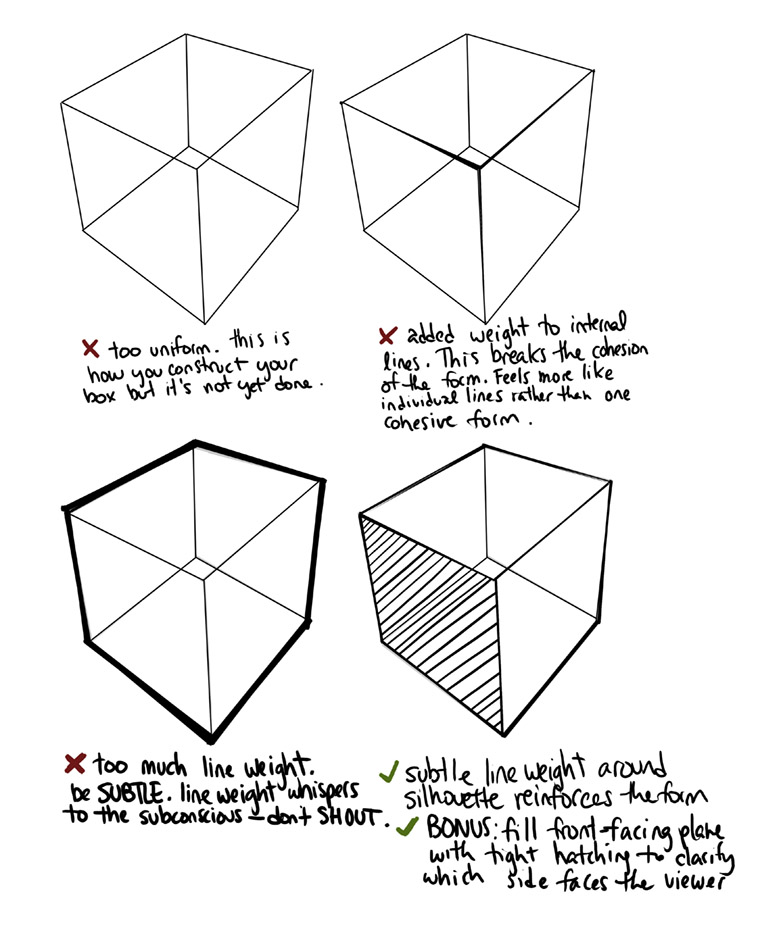 too uniform. this is
how you construct your
box but it's not yet done.
added weight to internal
lines. This breaks the cohesion
of the form. Feels more like
individual lines rather than one
cohesive form.
too much line weight.
be SUBTLE. line weight whispers
to the subconscious - don't SHOUT.
subtle line weight around
silhouette reinforces the form
BONUS: fill front-facing plane
with tight hatching to clarify
which side faces the viewer